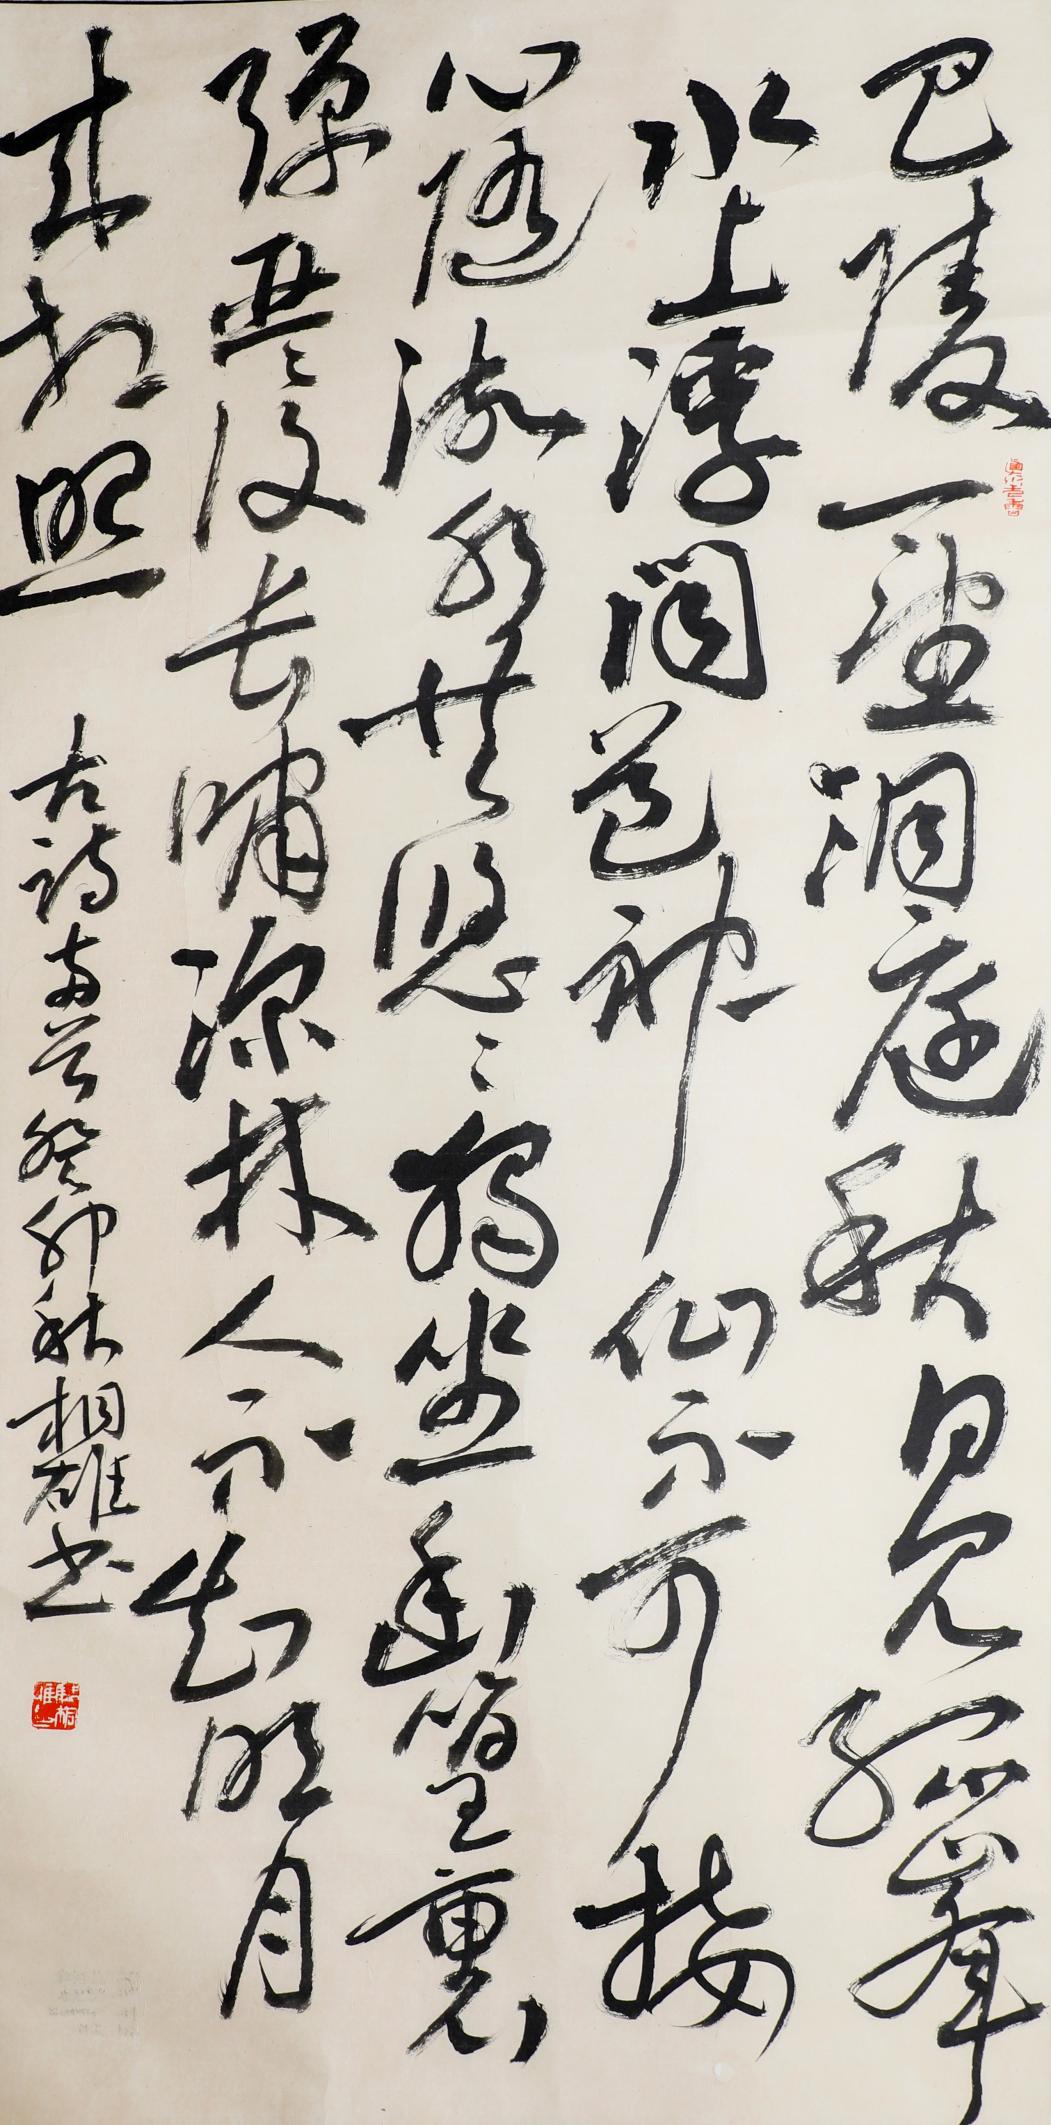 巴陵一望洞庭秋日见孤峰
水上浮闻道神仙不可接
心随湖水共悠々独坐幽篁裏
弹琴复长啸深林人不知明月
来相照
古诗两首癸卯秋桐雄书